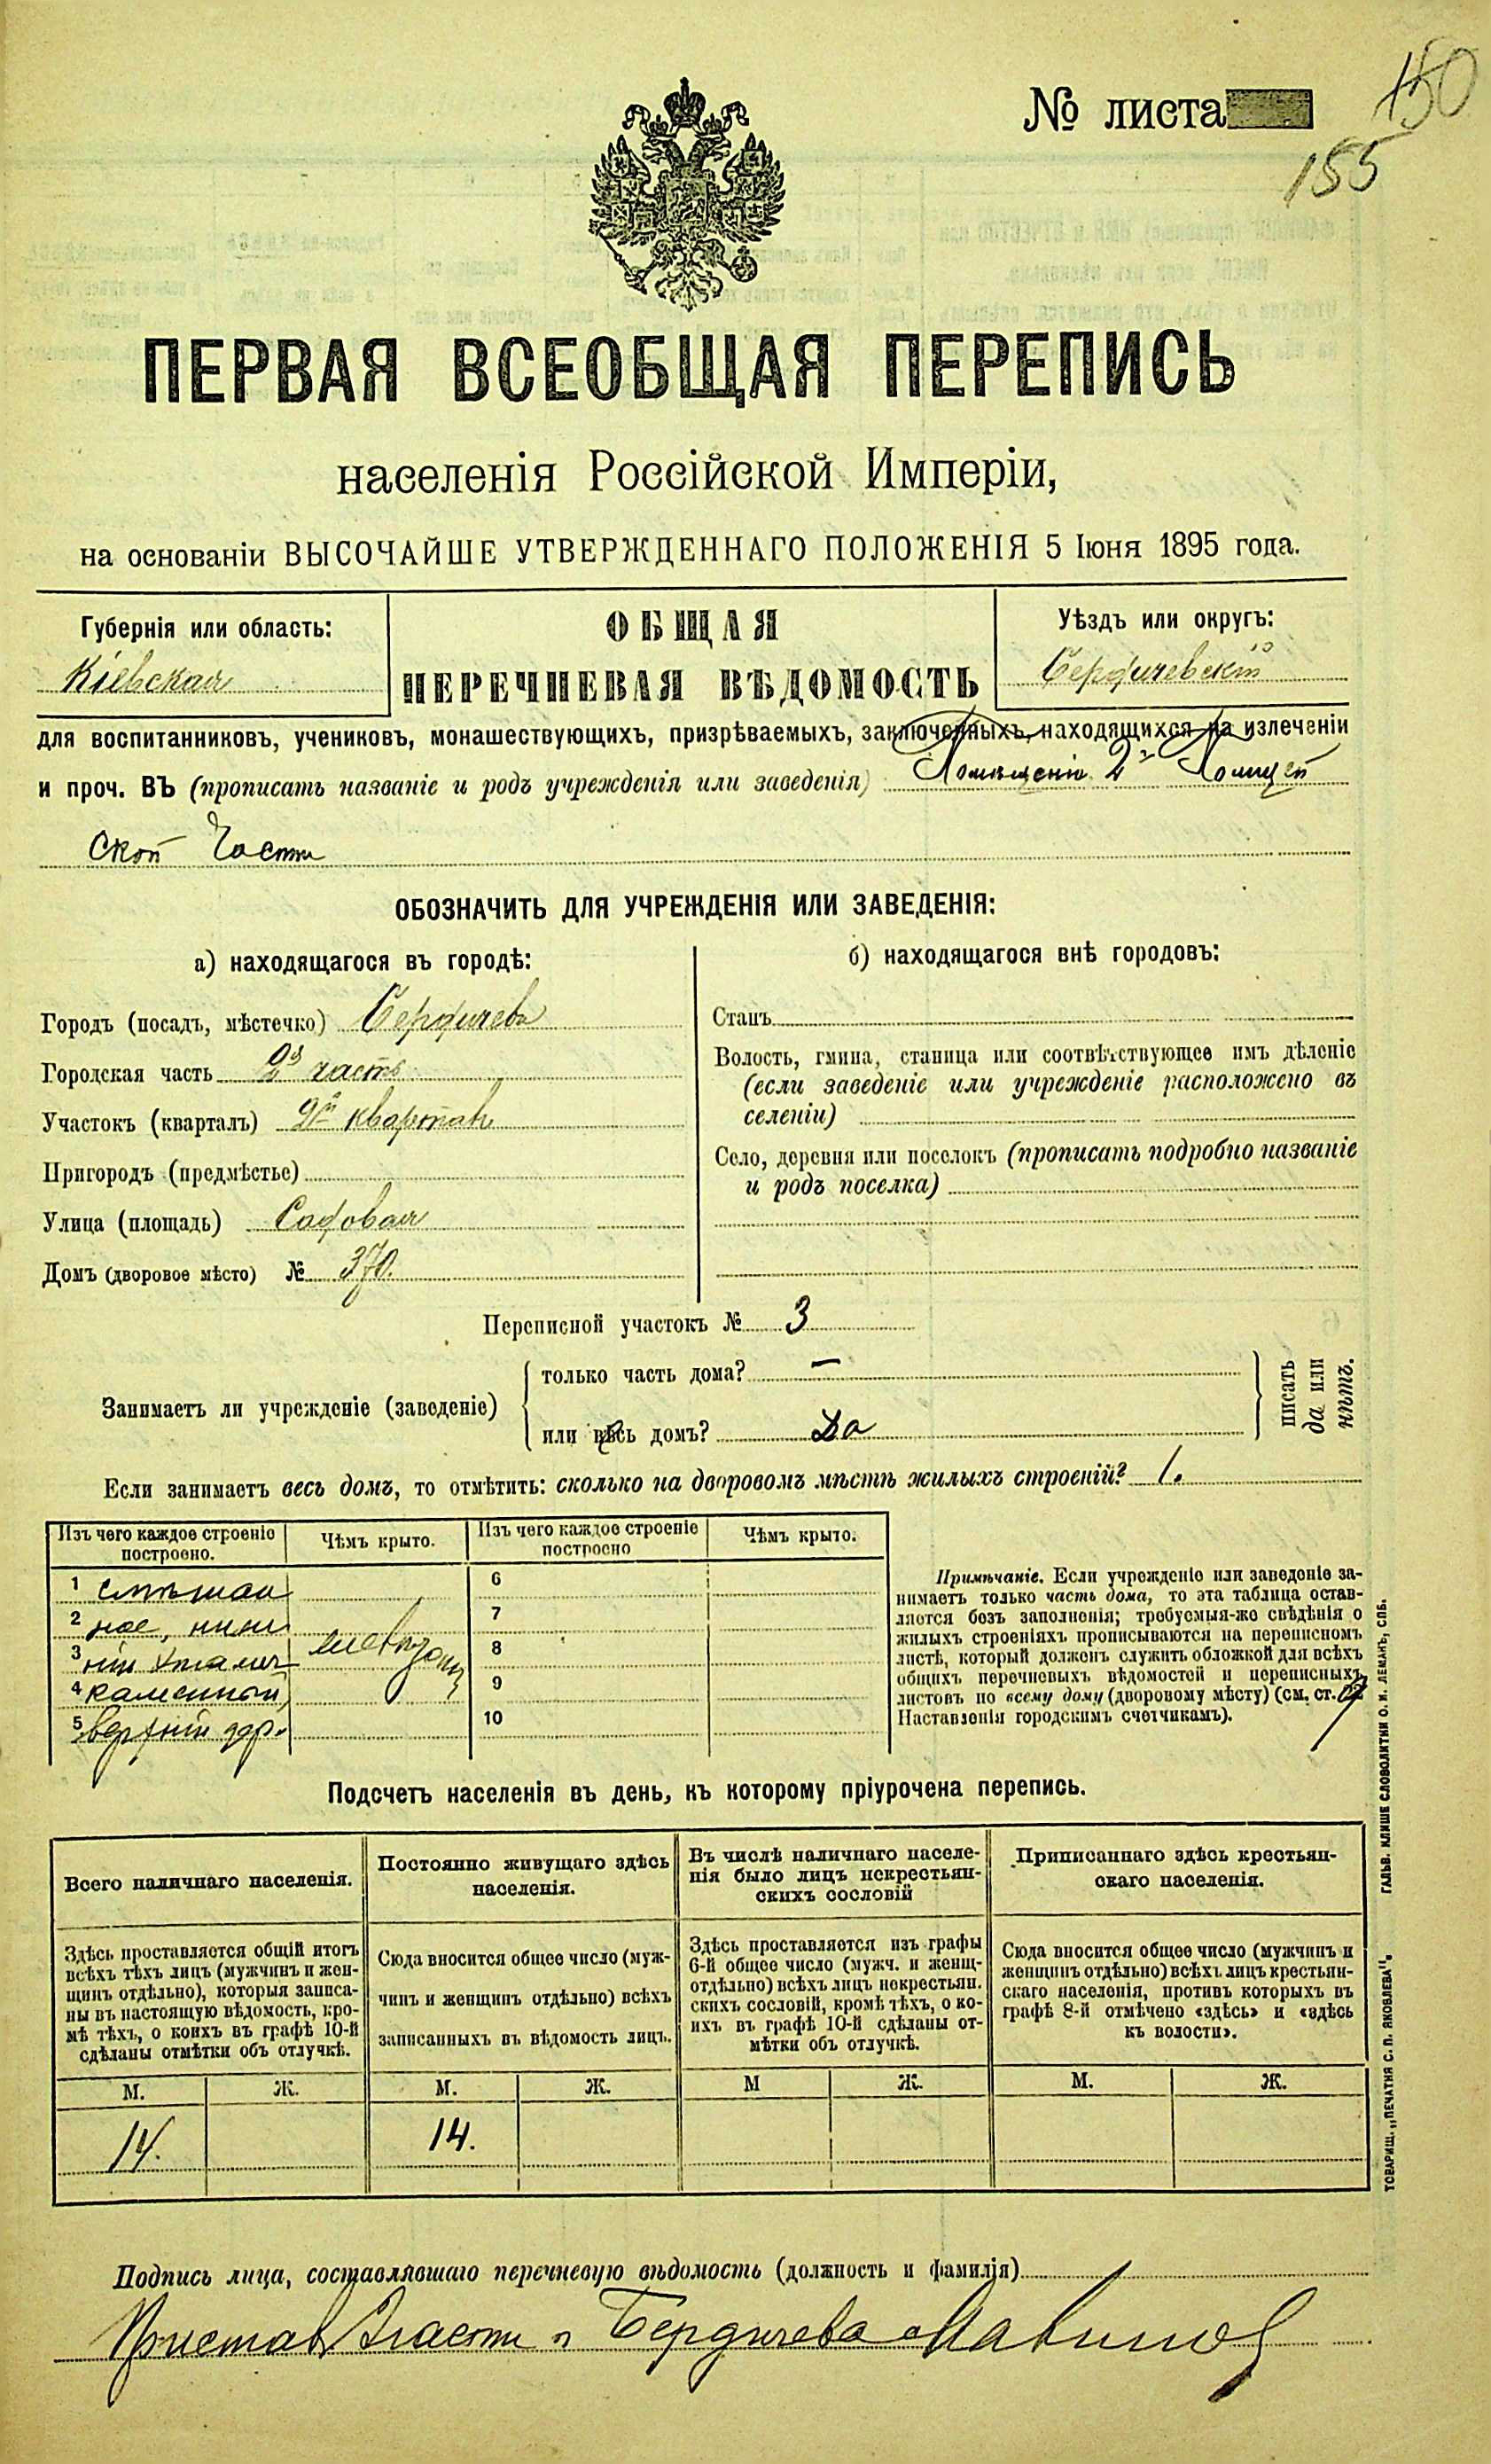 150
№ листа
155
ПЕРВАЯ ВСЕОБЩАЯ ПЕРЕПИСЬ
населенія Россійской Имперіи,
на основаніи ВЫСОЧАЙШЕ УТВЕРЖДЕННАГО ПОЛОЖЕНІЯ 5 Іюня 1895 года.
Губернія или область:
Кіевская
ОБЩАЯ
ПЕРЕЧНЕВАЯ ВѢДОМОСТЬ
Уѣздъ или округъ:
Бердичевскій
для воспитанниковъ, учениковъ, монашествующихъ, призрѣваемыхъ, заключенныхъ, находящихся на излеченіи
и проч. ВЪ (прописать названіе и родъ учрежденія или заведенія) Помѣщеніи 2й Полицей
ской Части
ОБОЗНАЧИТЬ ДЛЯ УЧРЕЖДЕНІЯ ИЛИ ЗАВЕДЕНІЯ:
а) находящагося въ городѣ:
Городъ (посадъ, мѣстечко) Бердичевъ
Городская часть 2я часть
Участокъ (кварталъ) 2й кварталъ
Пригородъ (предмѣстье)
Улица (площадь) Садовая
Домъ (дворовое мѣсто) № 370.
б) находящагося внѣ городовъ:
Станъ
Волость, гмина, станица или соотвѣтствующее имъ дѣленіе
(если заведеніе или учрежденіе расположено въ
селеніи)
Село, деревня или поселокъ (прописать подробно названіе
и родъ поселка)
Переписной участокъ № 3
Занимаетъ ли учрежденіе (заведеніе)
только часть дома? —
или весь домъ? Да
писать
да или
нѣтъ.
Если занимаетъ весь домъ, то отмѣтить: сколько на дворовомъ мѣстѣ жилыхъ строеній? 1.
Изъ чего каждое строеніе
построено.
Чѣмъ крыто.
Изъ чего каждое строеніе
построено
Чѣмъ крыто.
1 смѣшан
2 ное, ниж
3 ній этажъ
4 каменный,
5 верхній дер.
желѣзомъ
6
7
8
9
10
Примѣчаніе. Если учрежденіе или заведеніе за-
нимаетъ только часть дома, то эта таблица остав-
ляется безъ заполненія; требуемыя-же свѣдѣнія о
жилыхъ строеніяхъ прописываются на переписномъ
листѣ, который долженъ служить обложкой для всѣхъ
общихъ перечневыхъ вѣдомостей и переписныхъ
листовъ по всему дому (дворовому мѣсту) (см. ст.
Наставленія городскимъ счетчикамъ).
Подсчетъ населенія въ день, къ которому пріурочена перепись.
Всего наличнаго населенія.
Постоянно живущаго здѣсь
населенія.
Въ числѣ наличнаго населе-
нія было лицъ некрестьян-
скихъ сословій
Приписаннаго здѣсь крестьян-
скаго населенія.
Здѣсь проставляется общій итогъ
всѣхъ тѣхъ лицъ (мужчинъ и жен-
щинъ отдѣльно), которыя записа-
ны въ настоящую вѣдомость, кро-
мѣ тѣхъ, о коихъ въ графѣ 10-й
сдѣланы отмѣтки объ отлучкѣ.
Сюда вносится общее число (муж-
чинъ и женщинъ отдѣльно) всѣхъ
записанныхъ въ вѣдомость лицъ.
Здѣсь проставляется изъ графы
6-й общее число (мужч. и женщ-
отдѣльно) всѣхъ лицъ некрестьян.
скихъ сословій, кромѣ тѣхъ, о ко-
ихъ въ графѣ 10-й сдѣланы от-
мѣтки объ отлучкѣ.
Сюда вносится общее число (мужчинъ и
женщинъ отдѣльно) всѣхъ лицъ крестьян-
скаго населенія, противъ которыхъ въ
графѣ 8-й отмѣчено «здѣсь» и «здѣсь
къ волости».
М. Ж. М. Ж. М Ж. М. Ж.
14. 14.
Подпись лица, составлявшаго перечневую вѣдомость (должность и фамилія)
Приставъ 2 части г. Бердичева
ТОВАРИЩ. „ПЕЧАТНЯ С. П. ЯКОВЛЕВА“. ГАЛЬВ. КЛИШЕ СЛОВОЛИТНИ О. И. ЛЕМАНЪ, СПБ.